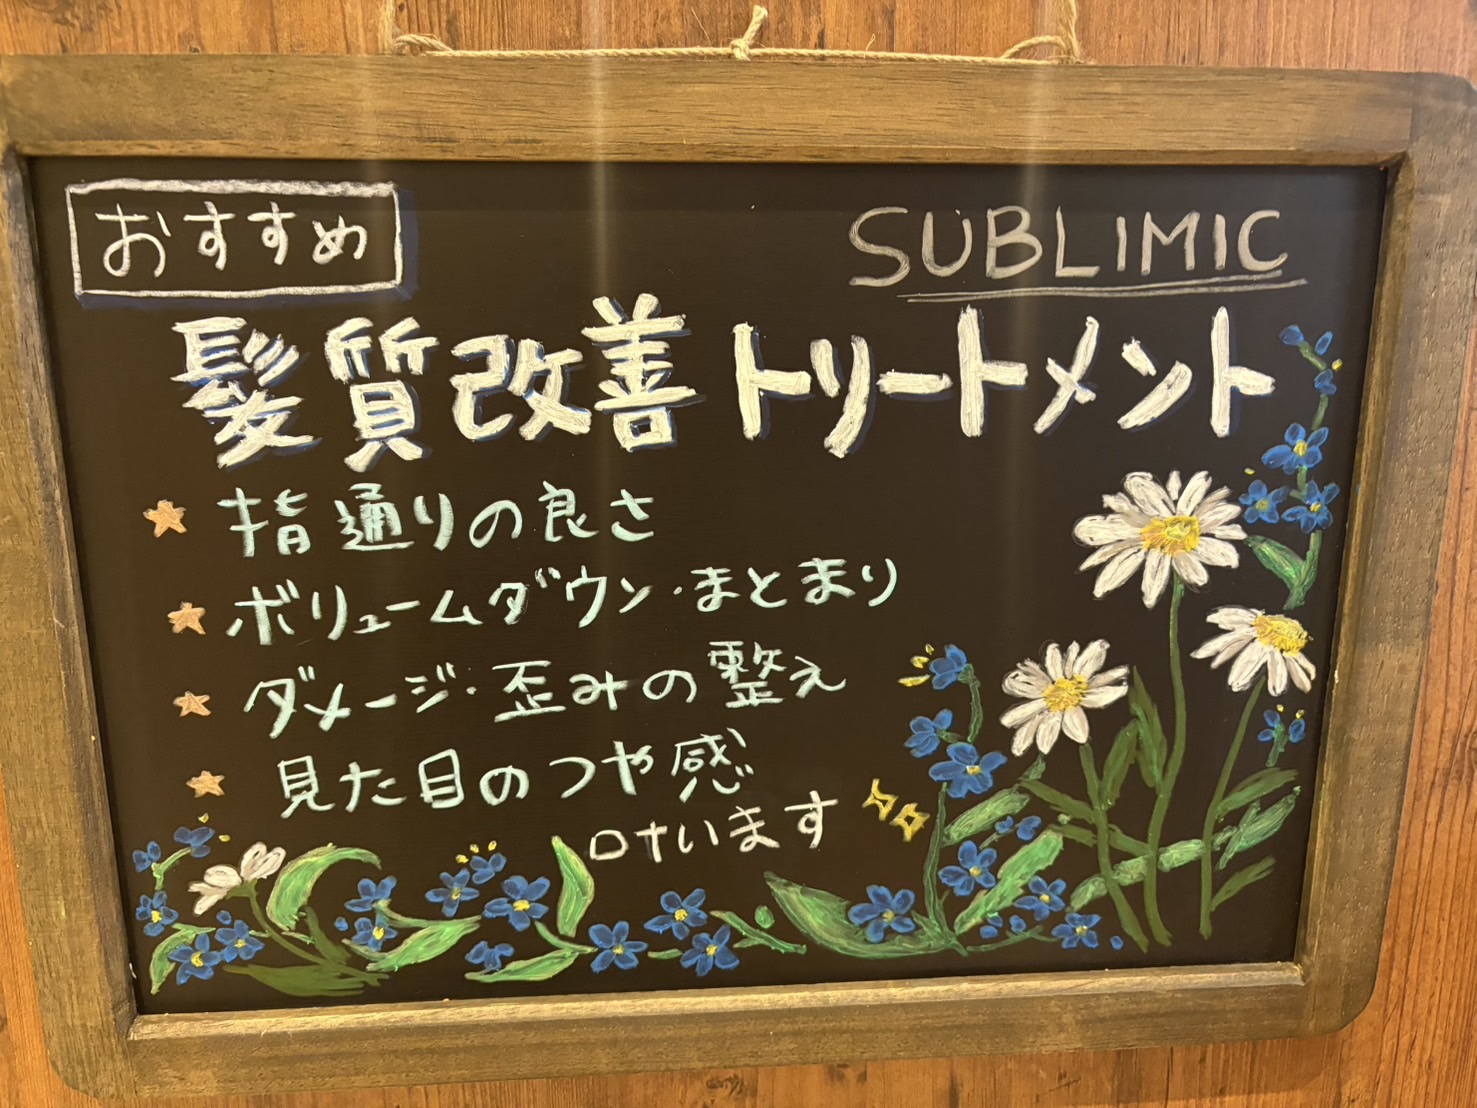 おすすめ
SUBLIMIC
髪質改善トリートメント
指通りの良さ
ボリュームダウン・まとまり
ダメージ・歪みの整え
見た目のつや感
叶います